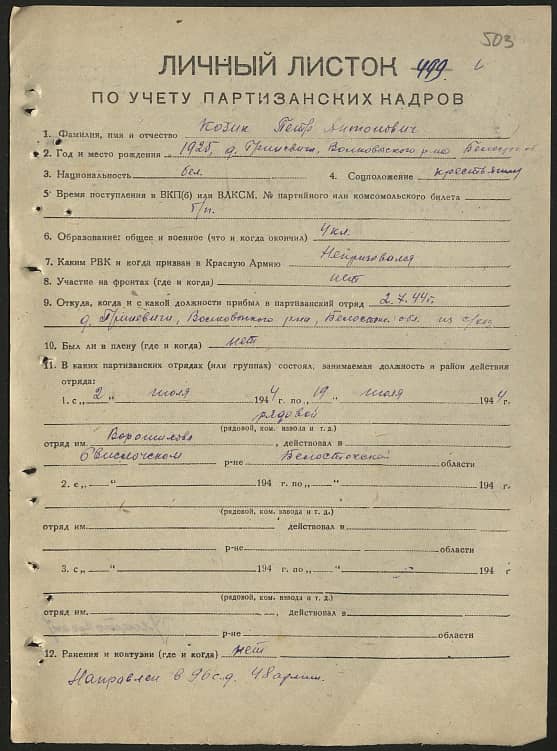 503
ЛИЧНЫЙ ЛИСТОК 499
ПО УЧЕТУ ПАРТИЗАНСКИХ КАДРОВ
1. Фамилия, имя и отчество Козик Петр Антонович
2. Год и место рождения 1925, д. Гриневичи, Волковысского р-на Белост.
3. Национальность бел. 4. Соцположение крестьянин
5. Время поступления в ВКП(б) или ВЛКСМ, № партийного или комсомольского билета
б/п.
6. Образование: общее и военное (что и когда окончил) 4 кл.
7. Каким РВК и когда призван в Красную Армию Непризывался
8. Участие на фронтах (где и когда) нет
9. Откуда, когда и с какой должности прибыл в партизанский отряд 2.7.44г.
д. Гриневичи, Волковысского р-на, Белосток. обл. из
10. Был ли в плену (где и когда) нет
11. В каких партизанских отрядах (или группах) состоял, занимаемая должность и район действия
отряда:
1. с „2 “ июля 1944 г. по „19 “ июля 1944 г.
рядовой
(рядовой, ком. взвода и т. д.)
отряд им. Ворошилова, действовал в
в Свислочском р-не Белостокской области
2. с „ “ 194 г. по „ “ 194 г.
(рядовой, ком. взвода и т. д.)
отряд им. действовал в
р-не области
3. с „ “ 194 г. по „ “ 194 г
(рядовой, ком. взвода и т. д.)
отряд им. , действовал в
р-не области
12. Ранения и контузии (где и когда) нет
Направлен в 96 с.д. 48 армии.